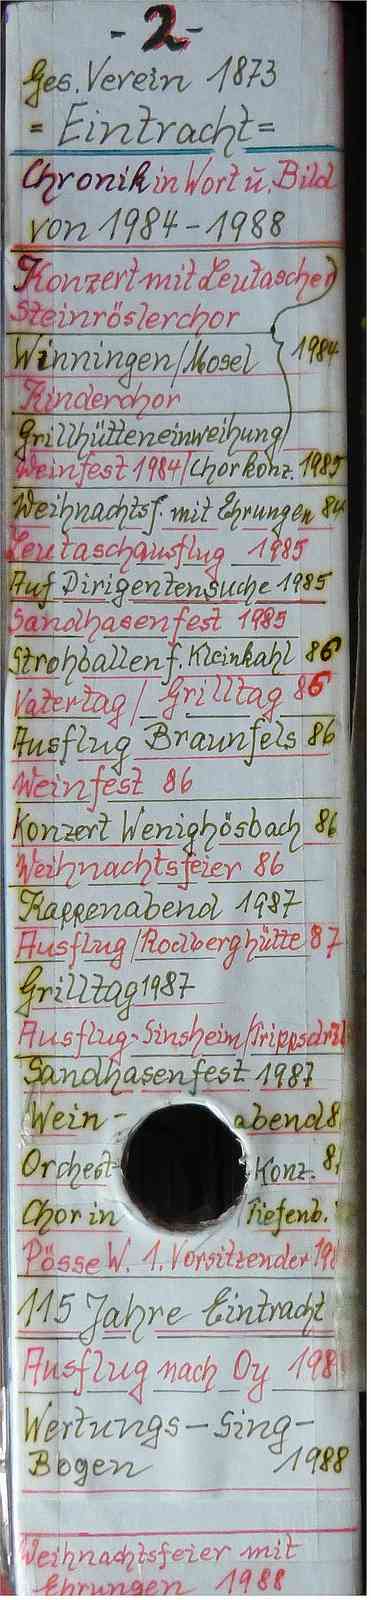 - 2 -
Ges. Verein 1873
= Eintracht =
Chronik in Wort u. Bild
von 1984 - 1988
Konzert mit Leutascher
Steinröslerchor
Winningen/Mosel 1984
Kinderchor
Grillhütteneinweihung
Weinfest 1984/Chorkonz. 1985
Weihnachtsf. mit Ehrungen 84
Leutaschausflug 1985
Auf Dirigentensuche 1985
Sandhasenfest 1985
Strohballenf. Kleinkahl 86
Vatertag/Grilltag 86
Ausflug Braunfels 86
Weinfest 86
Konzert Wenighösbach 86
Weihnachtsfeier 86
Kappenabend 1987
Ausflug/Rodberghütte 87
Grilltag 1987
Ausflug-Sinsheim/Trippsdrill
Sandhasenfest 1987
Wein - abend 8
Orchest- Konz. 8
Chor in Tiefenb.
Pösse W. 1. Vorsitzender 198
115 Jahre Eintracht
Ausflug nach Oy 198
Wertungs - Sing -
Bogen 1988
Weihnachtsfeier mit
Ehrungen 1988